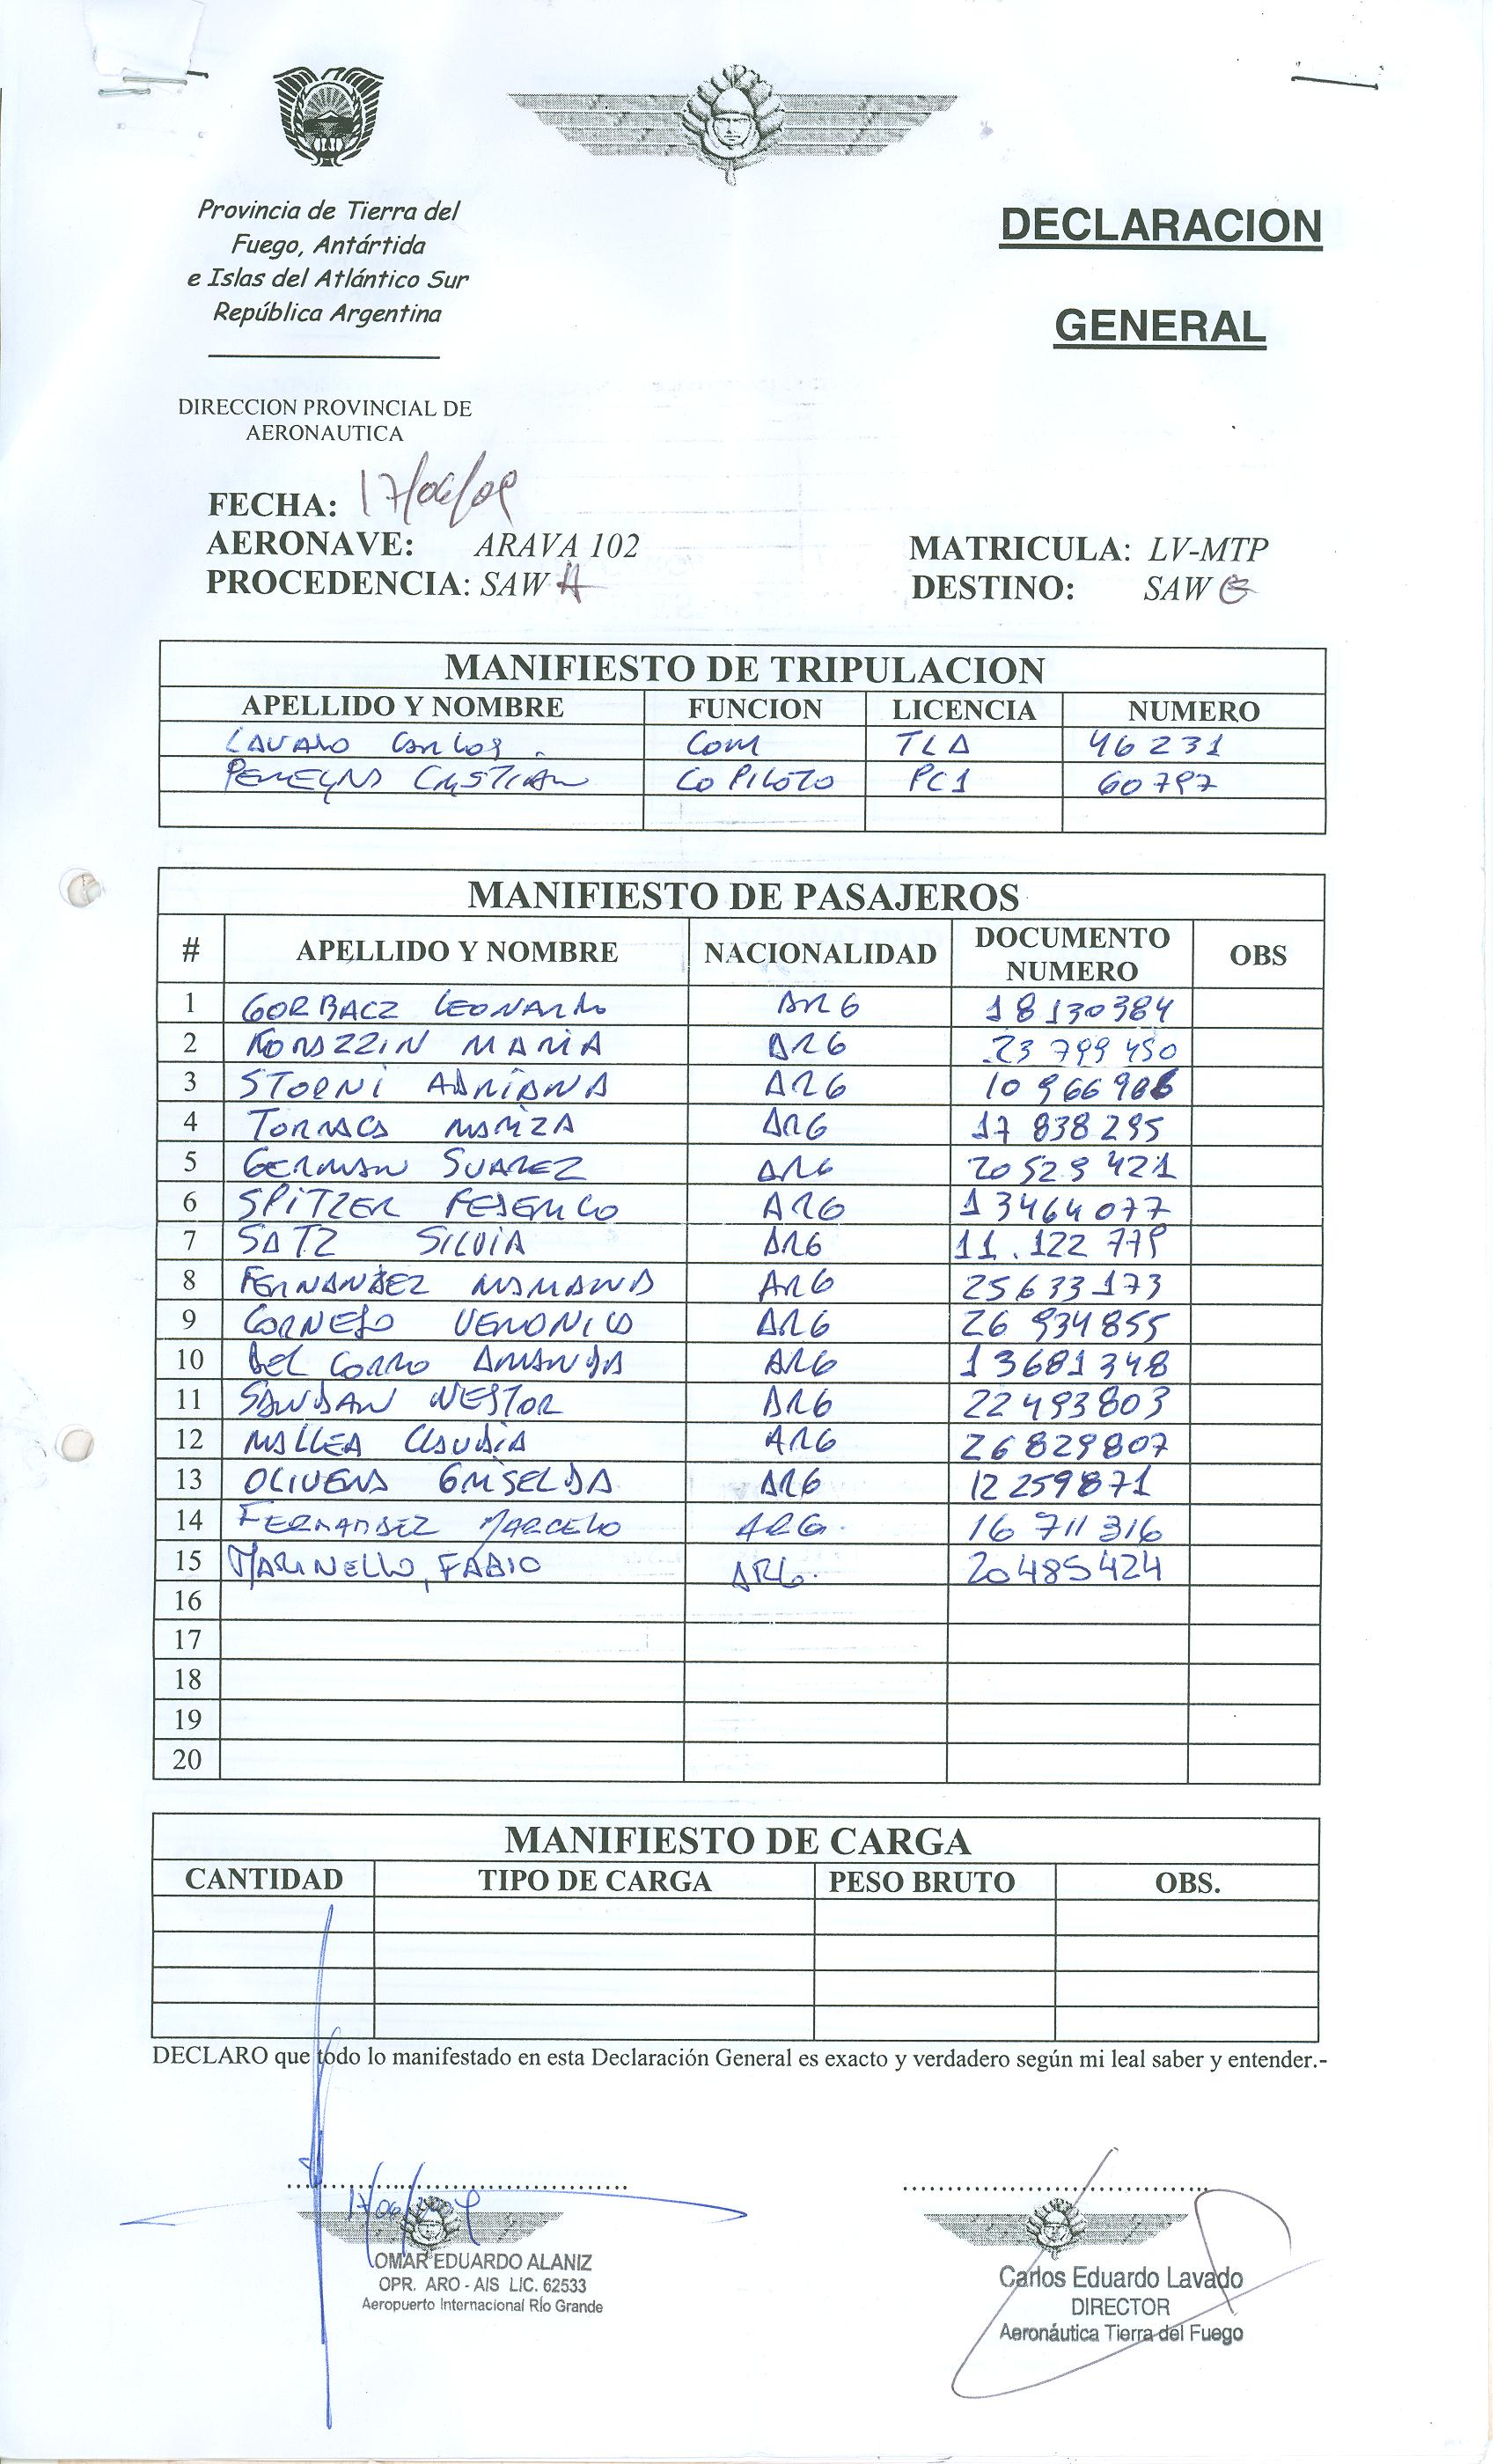 Provincia de Tierra del
Fuego, Antártida
e Islas del Atlántico Sur
República Argentina
DECLARACION
GENERAL
DIRECCION PROVINCIAL DE
AERONAUTICA
FECHA: 17/06/09
AERONAVE: ARAVA 102 MATRICULA: LV-MTP
PROCEDENCIA: SAWH DESTINO: SAWG
MANIFIESTO DE TRIPULACION
APELLIDO Y NOMBRE FUNCION LICENCIA NUMERO
LAVADO CARLOS. COM TLA 46231
CRISTIAN COPILOTO PC1 60797
MANIFIESTO DE PASAJEROS
# APELLIDO Y NOMBRE NACIONALIDAD DOCUMENTO NUMERO OBS
1 GORBACZ LEONARDO ARG 18130384
2 MARIA ARG 23 799 450
3 STORNI ADRIANA ARG 10 966
4 ARG 17 838 295
5 GERMAN SUAREZ ARG 20529421
6 SPITZER FEDERICO ARG 13464077
7 SATZ SILVIA ARG 11.122 779
8 FERNANDEZ ARG 25633173
9 CORNEJO VERONICA ARG 26 934855
10 DEL CORRO AMANDA ARG 13681348
11 NESTOR ARG 22493803
12 MALLEA CLAUDIA ARG 26829807
13 OLIVERA GRISELDA ARG 12259871
14 FERNANDEZ MARCELO ARG. 16 711 316
15 MARINELLO, FABIO ARG. 20485424
16
17
18
19
20
MANIFIESTO DE CARGA
CANTIDAD TIPO DE CARGA PESO BRUTO OBS.
DECLARO que todo lo manifestado en esta Declaración General es exacto y verdadero según mi leal saber y entender.-
OMAR EDUARDO ALANIZ
OPR. ARO - AIS LIC. 62533
Aeropuerto Internacional Río Grande
Carlos Eduardo Lavado
DIRECTOR
Aeronáutica Tierra del Fuego